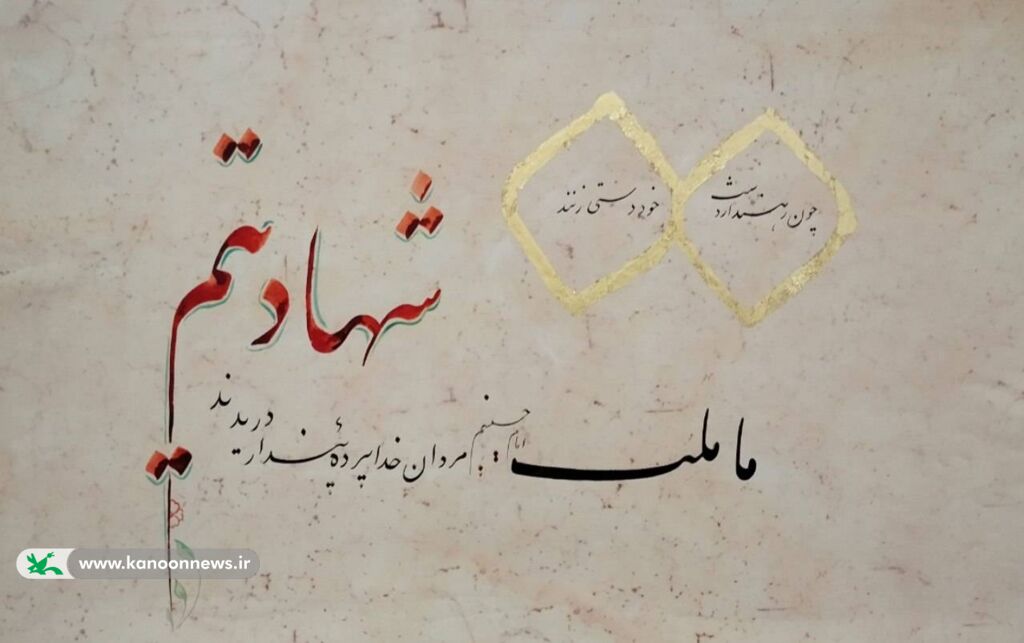 چون رهند از دست
خود دستی زنند
ما ملت
شهادتیم
امام حسینیم
مردان خدا پرده پندار دریدند
www.kanoonnews.ir